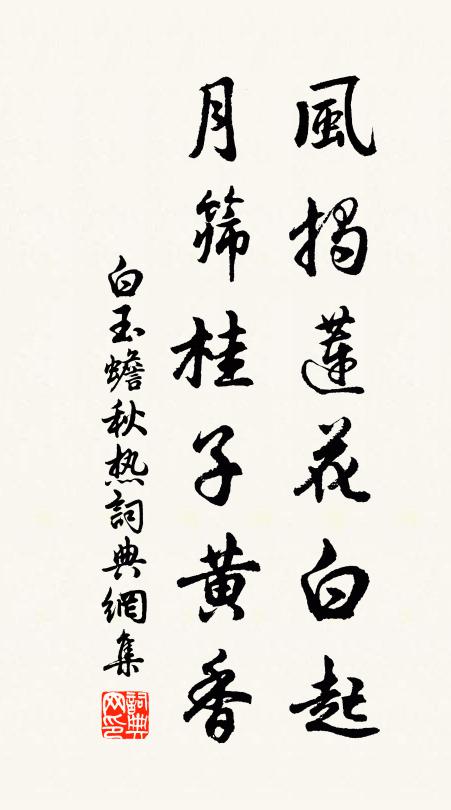 風揭蓮花白起
月篩桂子黃香
白玉蟾秋热詞典網集
詞典網印